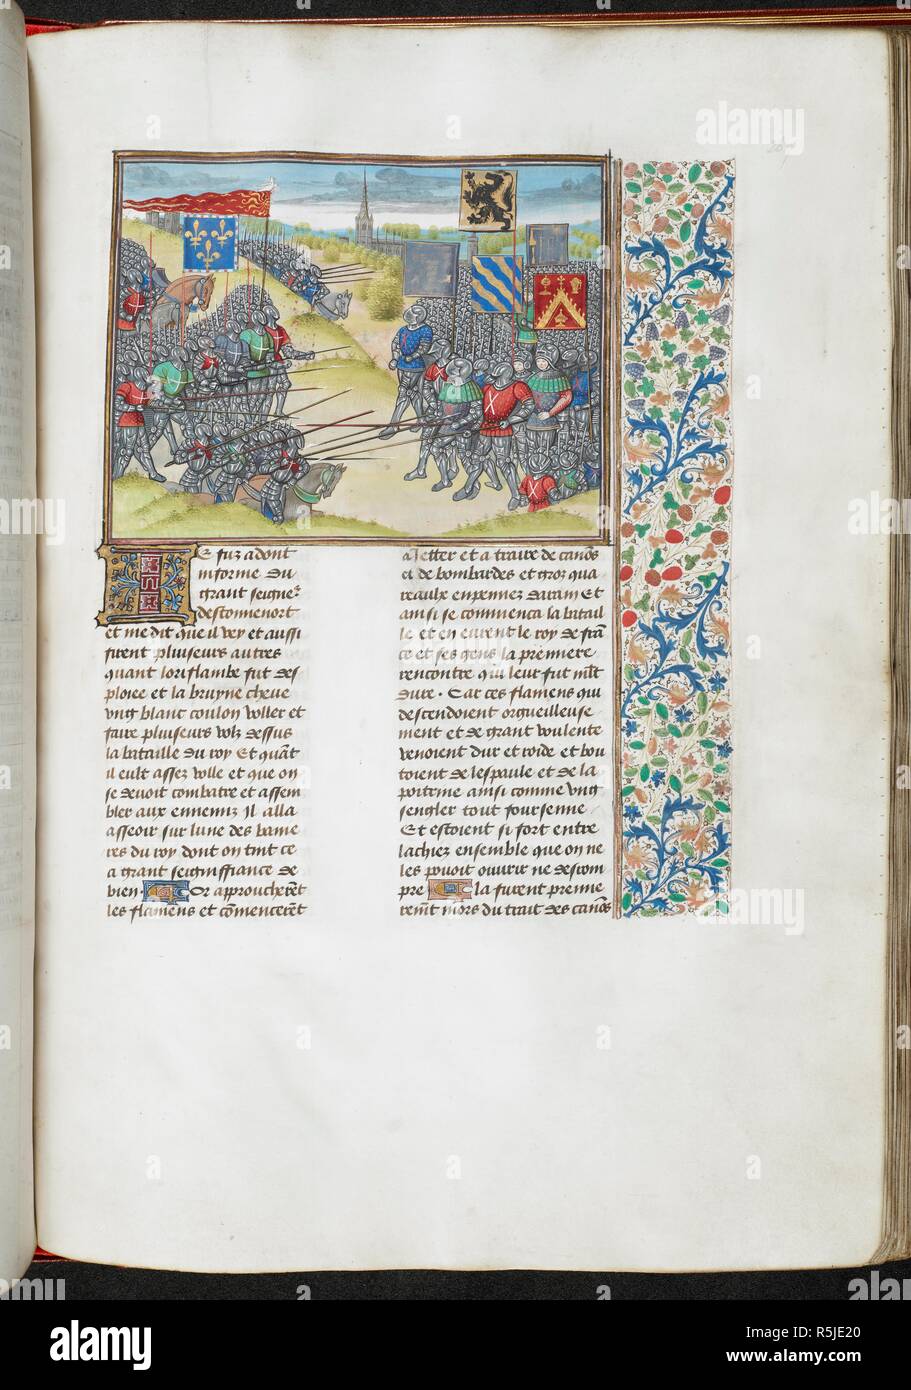 Ie fuz adont
informe du
grant seigne^r
destonnenort
et me dit que il vey et aussi
firent pluiseurs autres
quant loriflambe fut des
ploiee et la bruyne cheue
vng blanc coulon voller et
faire pluiseurs volz dessus
la bataille du roy Et quāt
il eult assez volle et que on
se devoit combatre et assem
bler aux ennemiz Il alla
asseoir sur lune des banie
res du roy dont on tint ce
a grant seigniffiance de
bien. Or approucherēt
les flamens et cōmencerēt
a Jetter et a traire de canōs
et de bombardes et gros qua
reaulx enpennez darain Et
ainsi se commenca la batail
le et en eurent le roy de frā
ce et ses gens la premiere
rencontre qui leur fut mlt
dure. Car ces flamens qui
descendoient orgueilleuse
ment et de grant voulente
venoient dur et roide et bou
toient de lespaule et de la
poitrine ainsi comme vng
sengler tout foursenne
Et estoient si fort entre
lachiez ensemble que on ne
les povoit ouvrir ne descom
pre la furent premie
remt mors du trait des canōs
alamy
alamy
Image ID: R5JE20
www.alamy.com